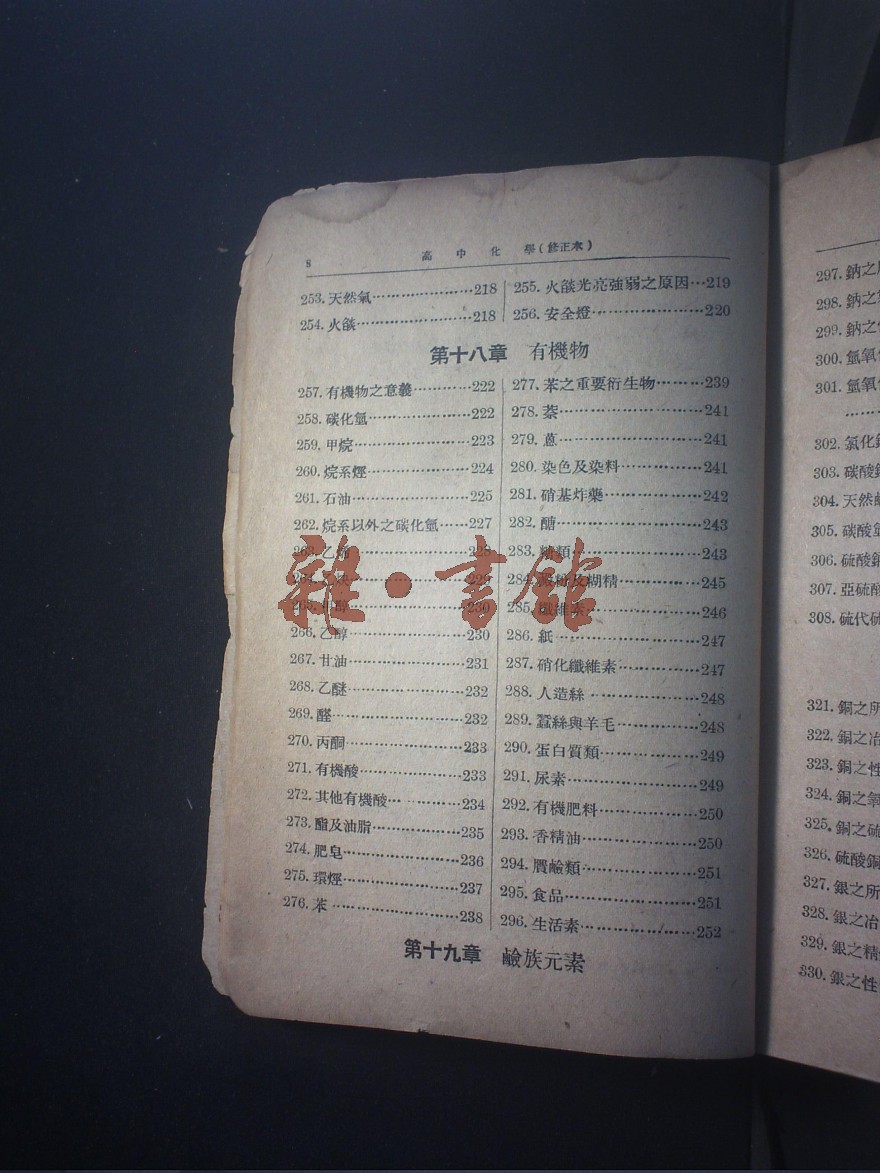 8
高中化學(修正本)
253.天然氣…………………218
254.火燄……………………218
255.火燄光亮強弱之原因…219
256.安全燈…………………220
第十八章 有機物
257.有機物之意義…………222
258.碳化氫…………………222
259.甲烷……………………223
260.烷系烴…………………224
261.石油……………………225
262.烷系以外之碳化氫……227
263.乙烯……………………228
229
230
266.乙醇……………………230
267.甘油……………………231
268.乙醚……………………232
269.醛………………………232
270.丙酮……………………233
271.有機酸…………………233
272.其他有機酸……………234
273.酯及油脂………………235
274.肥皂……………………236
275.環烴……………………237
276.苯………………………238
277.苯之重要衍生物………239
278.萘………………………241
279.蒽………………………241
280.染色及染料……………241
281.硝基炸藥………………242
282.醣………………………243
283.糖類……………………243
284.澱粉及糊精……………245
285.纖維素…………………246
286.紙………………………247
287.硝化纖維素……………247
288.人造絲…………………248
289.蠶絲與羊毛……………248
290.蛋白質類………………249
291.尿素……………………249
292.有機肥料………………250
293.香精油…………………250
294.贋鹼類…………………251
295.食品……………………251
296.生活素…………………252
第十九章 鹼族元素
297.鈉之
298.鈉之
299.鈉之
300.氫氧
301.氫氧
……
302.氯化
303.碳酸
304.天然
305.碳酸
306.硫酸
307.亞硫
308.硫代
321.銅之所
322.銅之冶
323.銅之性
324.銅之
325.銅之硫
326.硫酸銅
327.銀之所
328.銀之冶
329.銀之精
330.銀之性
雜·書館